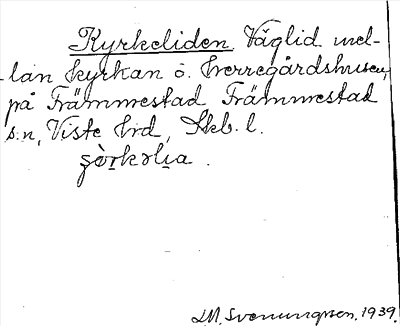 Kyrkeliden Väglid mel-
lan kyrkan o. herregårdshusen,
på Främmestad Främmestad
s:n, Viste hrd, Skb. l.
ʂòrkəlia .
LM, Svenungsson, 1939.